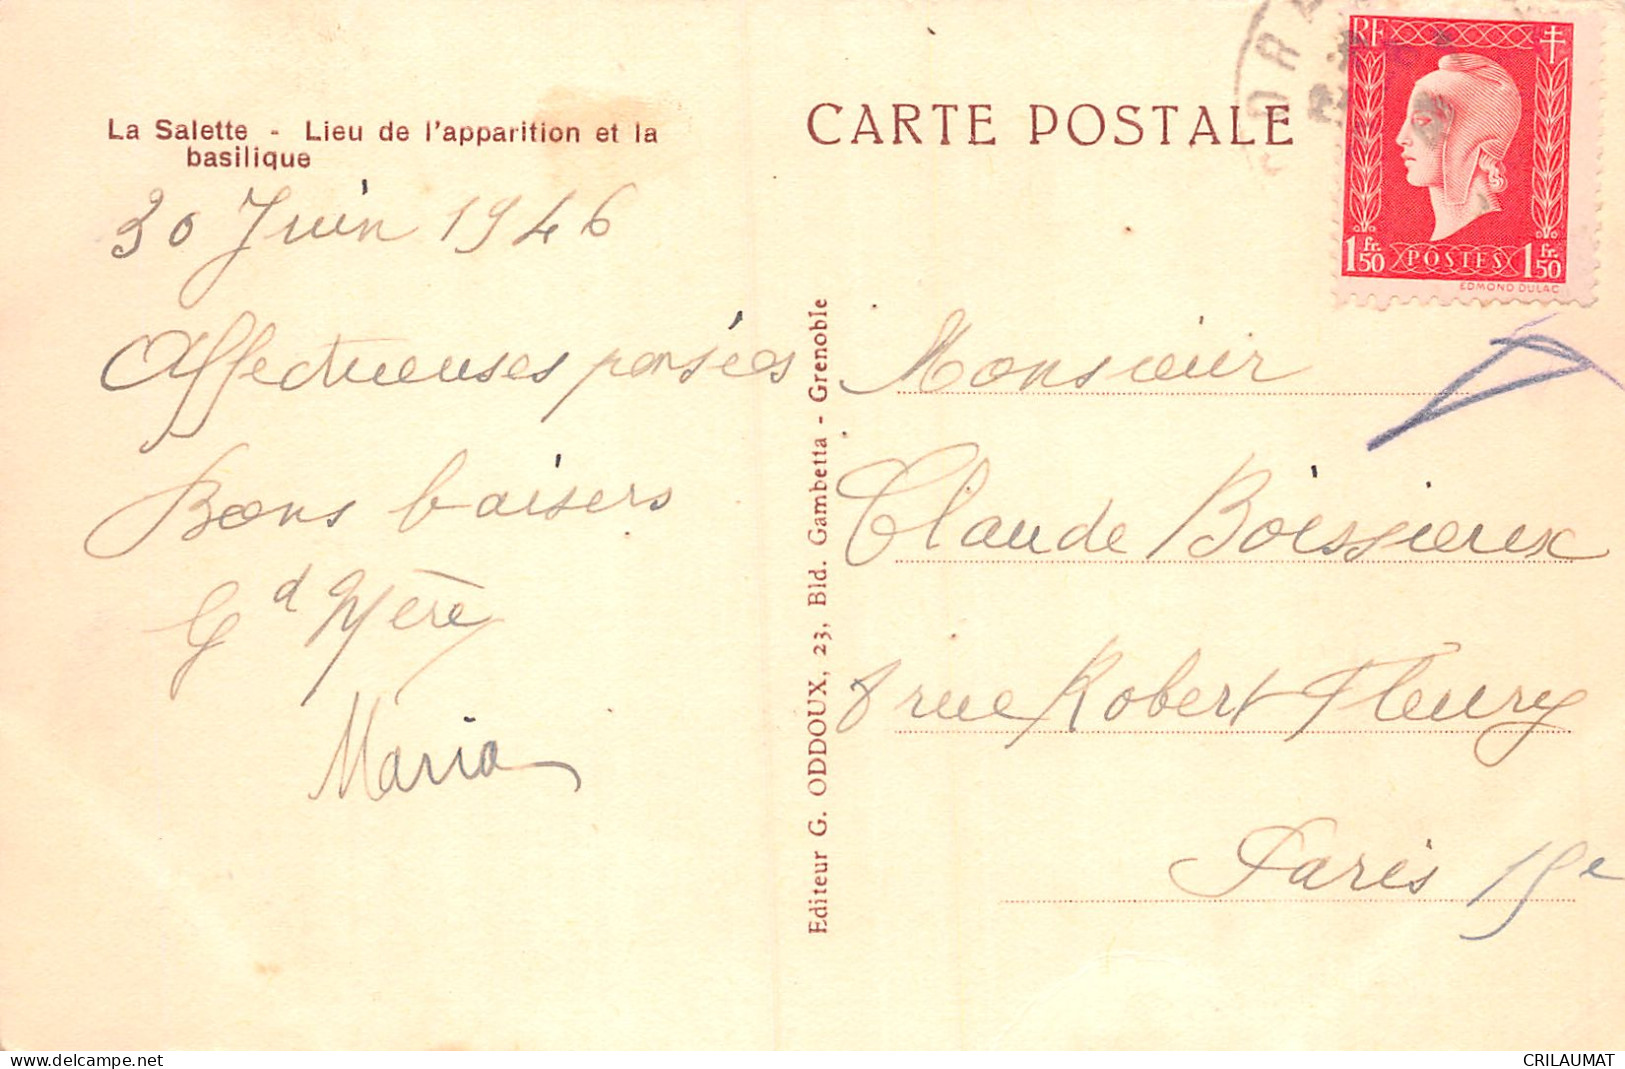 La Salette - Lieu de l'apparition et la
basilique
30 Juin 1946
Affectueuses pensées
Bons baisers
Gd Mère
Maria
CARTE POSTALE
RF
1 Fr. 50 POSTES 1 Fr. 50
EDMOND DULAC
Editeur G. ODDOUX, 23, Bld. Gambetta - Grenoble
Monsieur
Claude Boissieux
8 rue Robert Fleury
Paris 15e
www.delcampe.net
CRILAUMAT